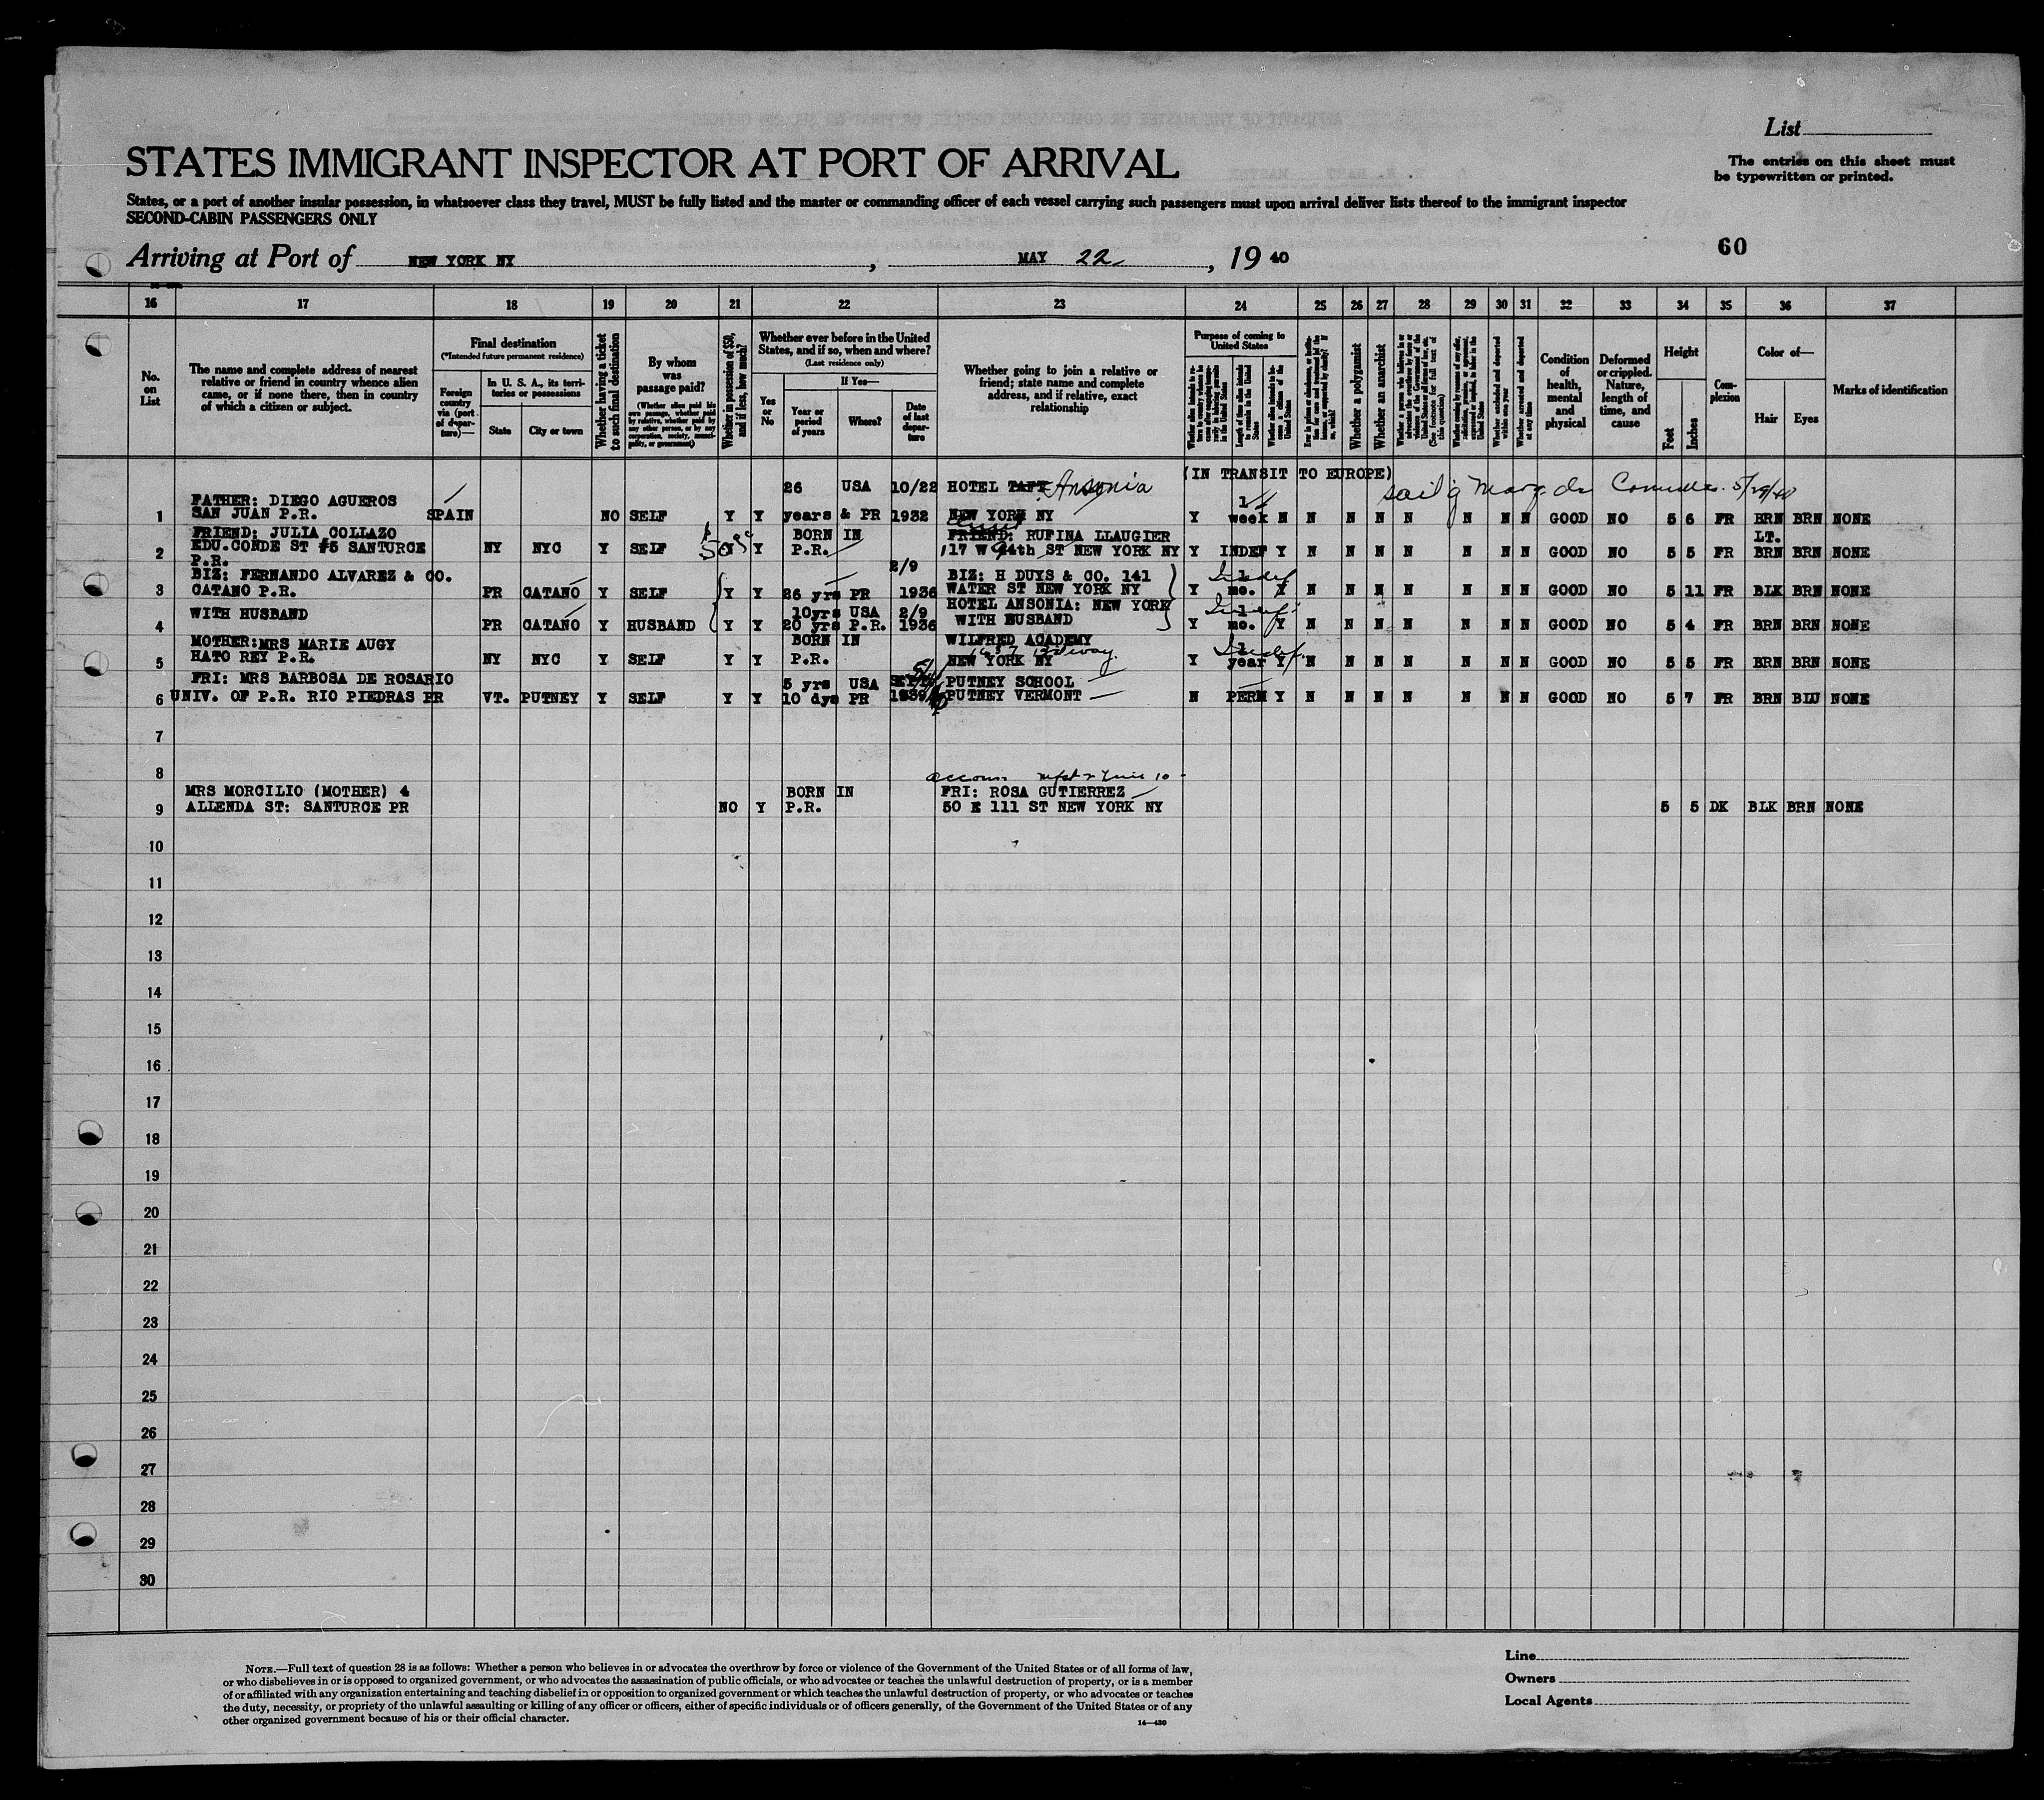 List
STATES IMMIGRANT INSPECTOR AT PORT OF ARRIVAL
The entries on this sheet must
be typewritten or printed.
States, or a port of another insular possession, in whatsoever class they travel, MUST be fully listed and the master or commanding officer of each vessel carrying such passengers must upon arrival deliver lists thereof to the immigrant inspector
SECOND-CABIN PASSENGERS ONLY
Arriving at Port of NEW YORK NY, MAY 22, 19 40
60
16 17 18 19 20 21 22 23 24 25 26 27 28 29 30 31 32 33 34 35 36 37
No. on List
The name and complete address of nearest
relative or friend in country whence alien
came, or if none there, then in country
of which a citizen or subject.
Final destination
(*Intended future permanent residence)
Foreign country via (port of departure)—
In U. S. A., its territories or possessions
State
City or town
Whether having a ticket to such final destination
By whom was passage paid?
(Whether alien paid his own passage, whether paid by relative, whether paid by any other person, or by any corporation, society, municipality, or government)
Whether in possession of $50, and if less, how much?
Whether ever before in the United
States, and if so, when and where?
(Last residence only)
Yes or No
If Yes—
Year or period of years
Where?
Date of last departure
Whether going to join a relative or
friend; state name and complete
address, and if relative, exact
relationship
Purpose of coming to
United States
Length of time alien intends to remain in the United States
Whether alien intends to become a citizen of the United States
Whether a polygamist
Whether an anarchist
(See footnote for full text of this question)
Whether arrested and deported at any time
Condition of health, mental and physical
Deformed or crippled. Nature, length of time, and cause
Height
Feet
Inches
Complexion
Color of—
Hair
Eyes
Marks of identification
(IN TRANSIT TO EUROPE)
26 USA 10/22 HOTEL TAFT Ansonia
FATHER: DIEGO AGUEROS
1 SAN JUAN P.R. SPAIN NO SELF Y Y years & PR 1932 NEW YORK NY Y 1 week N N N N N N N N GOOD NO 5 6 FR BRN BRN NONE
FRIEND: JULIA COLLAZO BORN IN FRIEND: RUFINA LLAUGIER LT.
2 EDU.CONDE ST #5 SANTURCE NY NYC Y SELF Y Y P.R. 117 W 94th ST NEW YORK NY Y INDEF Y N N N N N N N GOOD NO 5 5 FR BRN BRN NONE
P.R.
BIZ: FERNANDO ALVAREZ & CO. 2/9 BIZ: H DUYS & CO. 141 Indef
3 CATANO P.R. PR CATANO Y SELF Y Y 26 yrs PR 1936 WATER ST NEW YORK NY Y 1 mo. Y N N N N N N N GOOD NO 5 11 FR BLK BRN NONE
WITH HUSBAND 10yrs USA 2/9 HOTEL ANSONIA: NEW YORK Indef
4 PR CATANO Y HUSBAND Y Y 20 yrs P.R. 1936 WITH HUSBAND Y 1 mo. Y N N N N N N N GOOD NO 5 4 FR BRN BRN NONE
MOTHER:MRS MARIE AUGY BORN IN WILFRED ACADEMY Indef
5 HATO REY P.R. NY NYC Y SELF Y Y P.R. NEW YORK NY Y 1 year Y N N N N N N N GOOD NO 5 5 FR BRN BRN NONE
FRI: MRS BARBOSA DE ROSARIO 5 yrs USA SEPT PUTNEY SCHOOL
6 UNIV. OF P.R. RIO PIEDRAS PR VT. PUTNEY Y SELF Y Y 10 dys PR 1939 PUTNEY VERMONT N PERM Y N N N N N N N GOOD NO 5 7 FR BRN BLU NONE
7
8
MRS MORCILIO (MOTHER) 4 BORN IN FRI: ROSA GUTIERREZ
9 ALLENDA ST: SANTURCE PR NO Y P.R. 50 E 111 ST NEW YORK NY 5 5 DK BLK BRN NONE
10
11
12
13
14
15
16
17
18
19
20
21
22
23
24
25
26
27
28
29
30
NOTE.—Full text of question 28 is as follows: Whether a person who believes in or advocates the overthrow by force or violence of the Government of the United States or of all forms of law,
or who disbelieves in or is opposed to organized government, or who advocates the assassination of public officials, or who advocates or teaches the unlawful destruction of property, or is a member
of or affiliated with any organization entertaining and teaching disbelief in or opposition to organized government or which teaches the unlawful destruction of property, or who advocates or teaches
the duty, necessity, or propriety of the unlawful assaulting or killing of any officer or officers, either of specific individuals or of officers generally, of the Government of the United States or of any
other organized government because of his or their official character.
14—430
Line
Owners
Local Agents